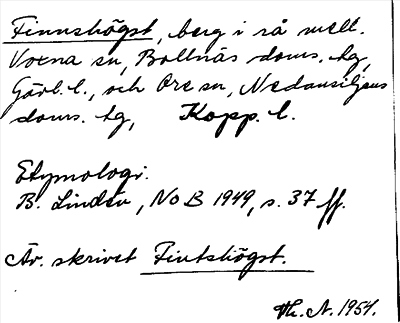 Finnshögst, berg i rå mell.
Voxna sn, Bollnäs doms. hg,
Gävl. l., och Ore sn, Nedansiljans
doms. hg, Kopp. l.
Etymologi.
B. Lindén, NoB 1949, s. 37 ff.
Äv. skrivet Fintshögst.
Th. N. 1954.